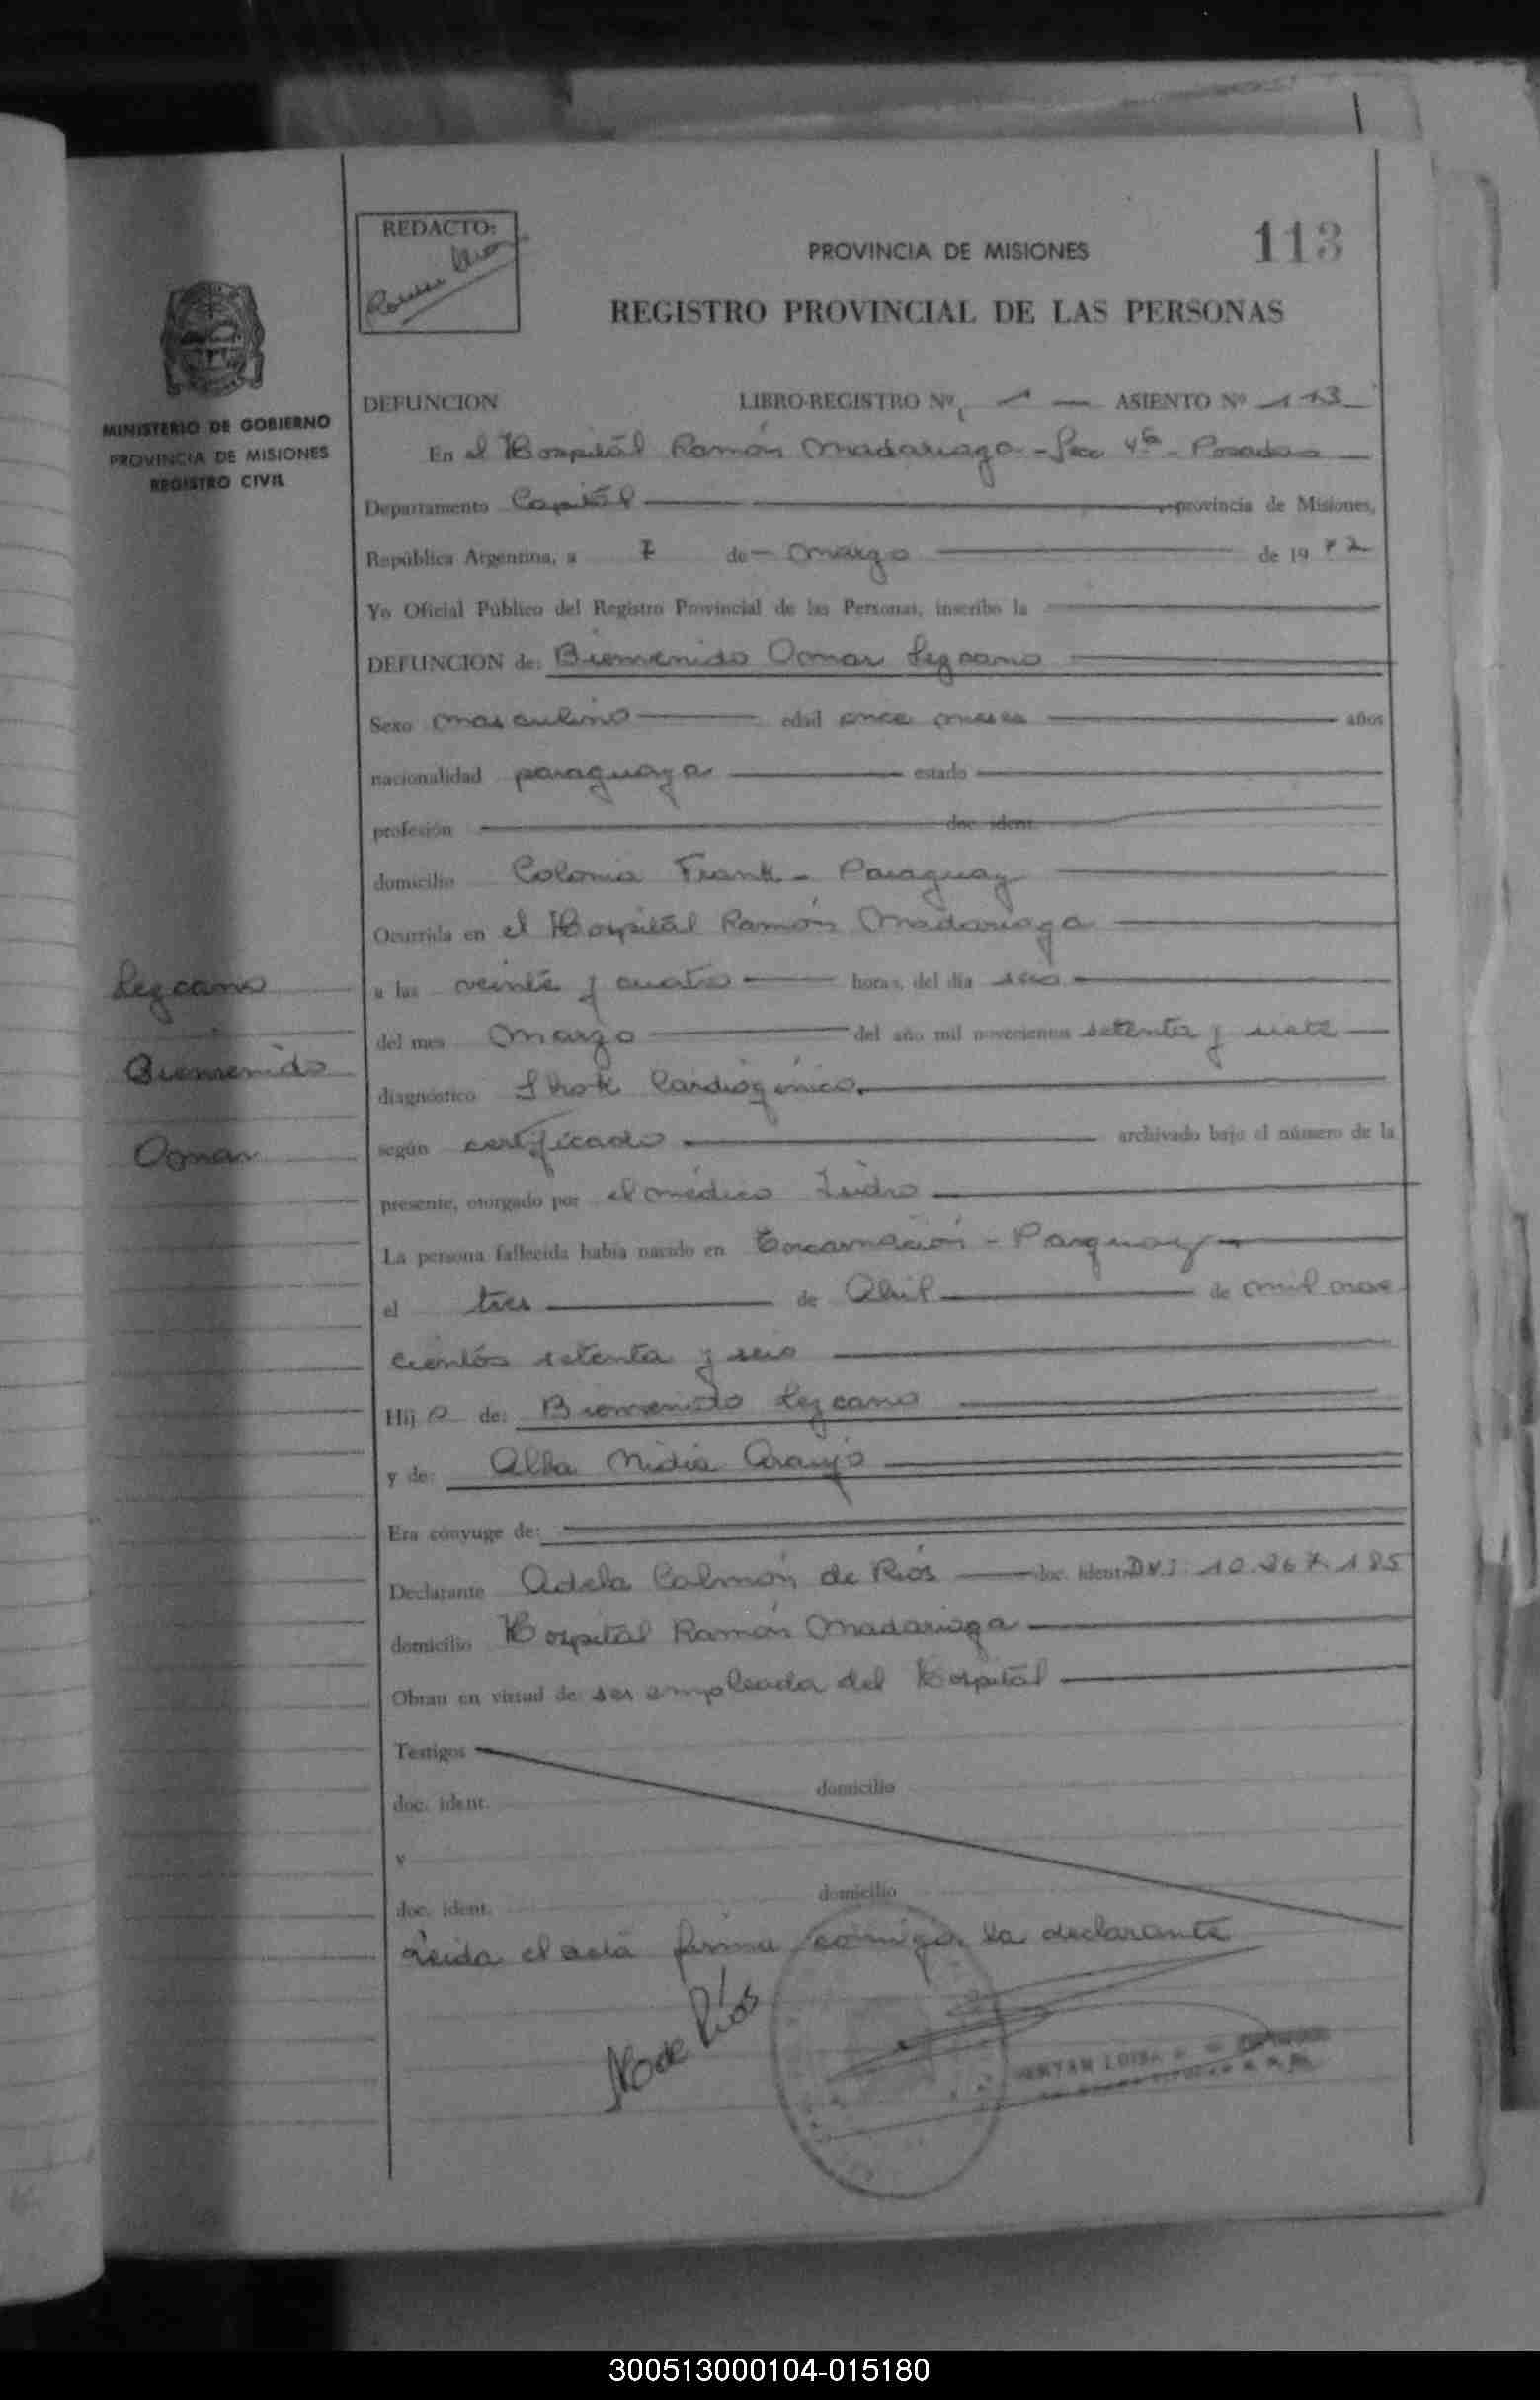 REDACTO:
PROVINCIA DE MISIONES
113
REGISTRO PROVINCIAL DE LAS PERSONAS
MINISTERIO DE GOBIERNO
PROVINCIA DE MISIONES
REGISTRO CIVIL
DEFUNCION LIBRO-REGISTRO Nº 1 ASIENTO Nº 113
En el Hospitál Ramón Madariaga - Secc 4ª - Posadas
Departamento Capitál provincia de Misiones,
República Argentina, a 7 de marzo de 19 77
Yo Oficial Público del Registro Provincial de las Personas, inscribo la
DEFUNCION de: Bienvenido Osmar Lezcano
Sexo masculino edad once meses años
nacionalidad paraguaya estado
profesión doc. ident.
domicilio Colonia Frank - Paraguay
Ocurrida en el Hospitál Ramón Madariaga
a las veinte y cuatro horas, del día seis
Lezcano
del mes Marzo del año mil novecientos setenta y siete
Bienvenido
diagnóstico Shok Cardiogénico.
Osmar
según certificado archivado bajo el número de la
presente, otorgado por el médico Isidro
La persona fallecida había nacido en Encarnación - Parguay
el tres de Abril de mil nove
cientos setenta y seis
Hij o de: Bienvenido Lezcano
y de: Alba Nidia Araujo
Era cónyuge de:
Declarante Adela Colmán de Ríos doc. ident. D.N.I. 10.267.185
domicilio Hospitál Ramón Madariaga
Obran en virtud de ser empleada del Hospital
Testigos
doc. ident. domicilio
y
doc. ident. domicilio
Leida el acta firma conmigo la declarante
de Ríos
300513000104-015180